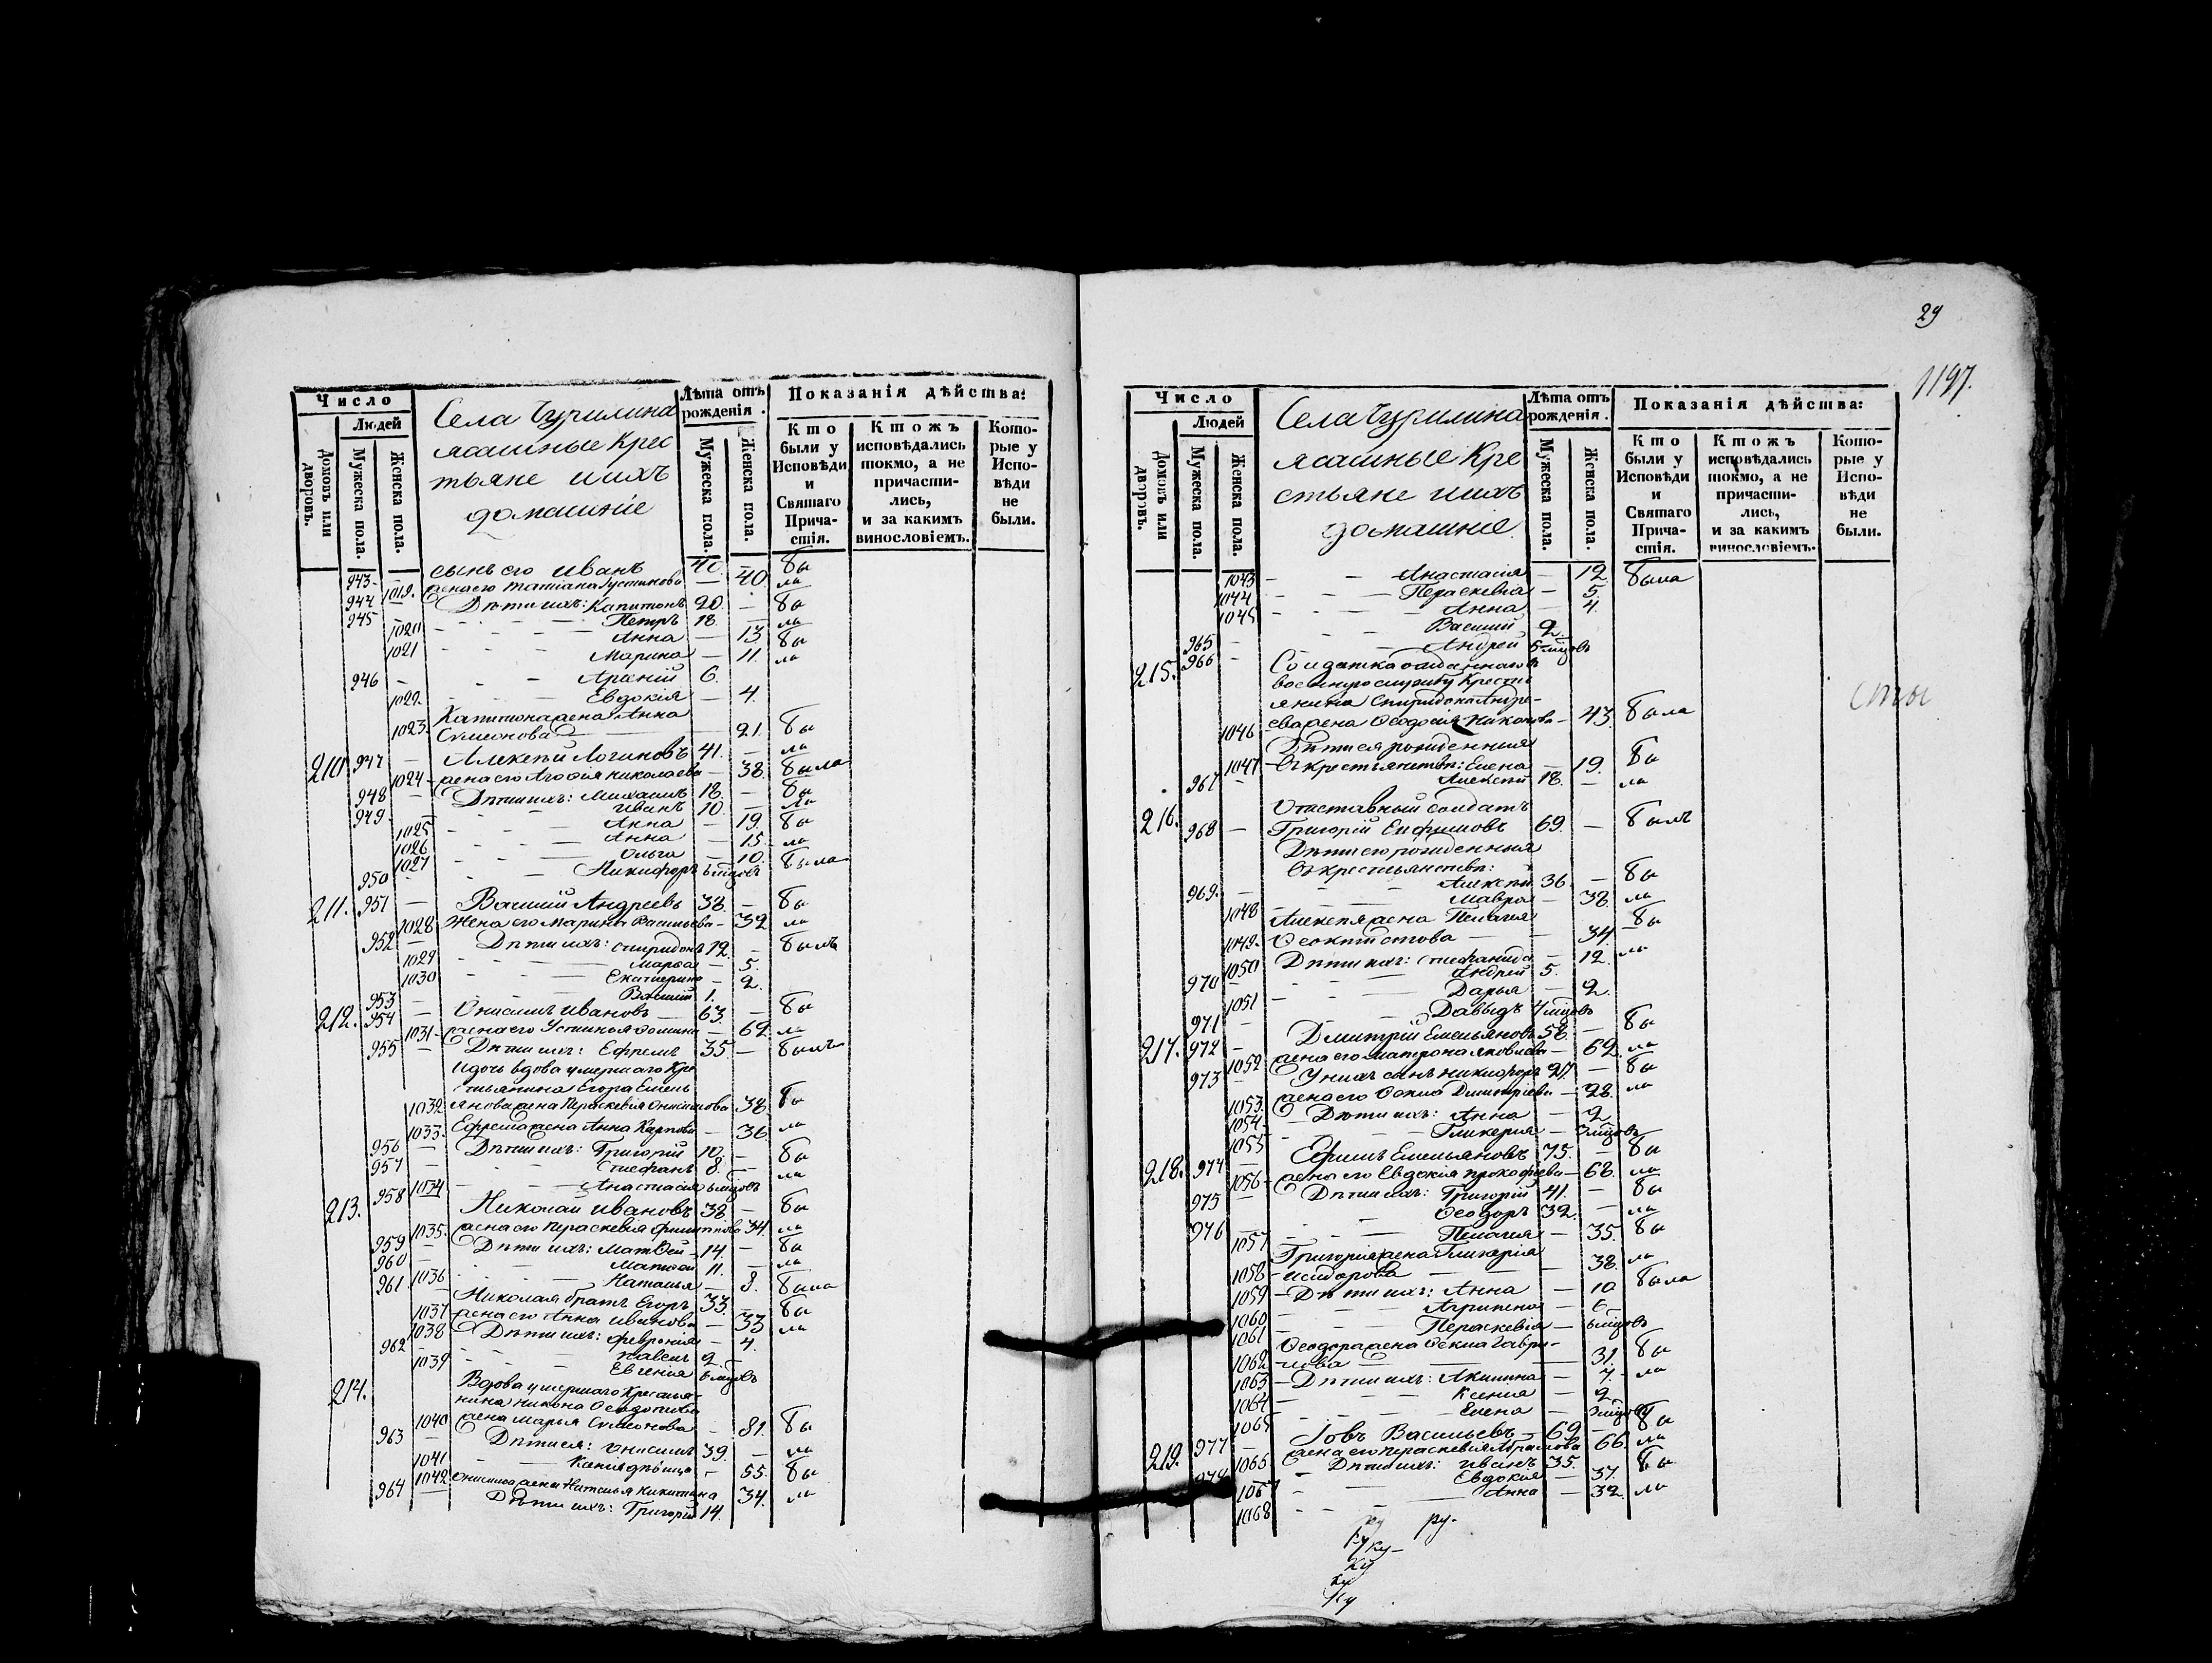 Число
Людей
Домовъ или дворовъ.
Мужеска пола.
Женска пола.
Села Чурилина
ясашные Крес
тьяне и ихъ
домашніе
Лѣта отъ рожденія.
Мужеска пола.
Женска пола.
Показанія дѣйства:
Кто были у Исповѣди и Святаго Причастія.
Ктожъ исповѣдались токмо, а не причастились, и за какимъ винословіемъ.
Которые у Исповѣди не были.
943. — сынъ его Иванъ 40 — бы
1019. жена его Татіана Іустинова — 40 ла
944 — Дѣти ихъ: Капитонъ 20. — бы
945 — Петръ 18 — ла
1020 Анна — 13 бы
1021 Марина — 11. ла
946 — Арсеній 6.
1022. Евдокія — 4.
Капитона жена Анна
1023. Симеонова — 21. бы
210 947 — Алексѣй Логиновъ 41. — ла
1024 — жена его Агафія Николаева — 38. была
948 — Дѣти ихъ: Михаилъ 18. — бы
949. Иванъ 10. — ла
1025 Анна — 19. бы
1026 Анна — 15. ла
1027 Ольга — 10. была
950 Никифоръ 6 мцовъ
211. 951 — Василій Андреевъ 38. — бы
1028 Жена его Марина Васильева — 39 ла
952 — Дѣти ихъ: Спиридонъ 12. — былъ
1029 Марѳа — 5.
1030 Екатерина — 2.
953 — Василій 1.
212. 954 — Онисимъ Ивановъ — 63. — бы
1031 — жена его Устинья Ѳомина — 62 ла
955 — Дѣти ихъ: Ефремъ 35. — былъ
И дочь вдова умершаго Кре
стьянина Егора Емель
1032 янова жена Параскевія Онисимова 38 бы
1033. Ефрема жена Анна Карпова — 36. ла
956 — Дѣти ихъ: Григорій 10. — бы
957 — Стефанъ 8. — ла
1034 Анастасія 6 мцовъ
213. 958 Николай Ивановъ 38 — бы
1035. жена его Параскевія Филиппова 34. ла
959 — Дѣти ихъ: Матѳей 14. — бы
960 — Матѳей 11. — ла
1036 Наталья — 8. была
961 Николая братъ Егоръ 33. — бы
1037 жена его Анна Иванова — 33 ла
1038 Дѣти ихъ: Февронія — 4.
962 Павелъ 2. —
1039 Евгенія 6 мцовъ
214. Вдова умершаго Крестья-
нина Никона Ѳеодотова
1040 жена Марья Симеонова — 81. бы
963 — Дѣти ея: Онисимъ 39. — ла
1041 Ксенія дѣвица — 55. бы
1042. Онисима жена Наталья Никитина 34. ла
964 — Дѣти ихъ: Григорій 14.
29
1197.
Число
Людей
Домовъ или дворовъ.
Мужеска пола.
Женска пола.
Села Чурилина
ясашные Кре
стьяне и ихъ
домашніе.
Лѣта отъ рожденія.
Мужеска пола.
Женска пола.
Показанія дѣйства:
Кто были у Исповѣди и Святаго Причастія.
Ктожъ исповѣдались токмо, а не причастились, и за какимъ винословіемъ.
Которые у Исповѣди не были.
1043 Анастасія — 12 была
1044 Параскевіа — 5.
1045 Анна — 4.
965 — Василій 2.
966 — Андрей 5 мцовъ
215. Солдатка отданнаго въ
военную службу Кресть
янина Спиридона Андре-
1046 ева жена Ѳеодосія Никонова — 43 была
Дѣти ея рожденныя
1047 въ крестьянствѣ: Елена — 19. бы
967 — Алексѣй 18. — ла
216. Отставный солдатъ
968 — Григорій Ефимовъ 69. — былъ
Дѣти его рожденныя
въ крестьянствѣ:
969. — Алексѣй 36. — бы
1048 Мавра — 38 ла
Алексѣя жена Пелагея бы
1049. Ѳеоктистова — 34. ла
1050 Дѣти ихъ: Стефанида — 12.
970 — Андрей 5.
1051 — Дарья — 2.
971 — Давыдъ 4 мцовъ
217. 972 — Дмитрій Емельяновъ 58. — бы
1052 жена его Матрона Яковлева — 62. ла
973 — У нихъ сынъ Никифоръ 27. — бы
1053. жена его Дмитріева — 28. ла
1054. Дѣти ихъ: Анна — 2
1055 Гликерія — 3 мцовъ
218. 974 — Ефимъ Емельяновъ 75. — бы
1056 — жена его Евдокія Прокофьева — 68. ла
975 — Дѣти ихъ: Григорій 41. — бы
976 — Ѳеодоръ 32. — ла
1057 Пелагея — 35. бы
Григорія жена Гликерія
1058 — Исидорова — 38. ла
1059 — Дѣти ихъ: Анна — 10 была
1060 Агрипена — 6
1061 Параскевія — 6 мцовъ
Ѳеодора жена Ѳекла Гаври-
1062 лова — 31. бы
1063 — Дѣти ихъ: Акилина — 7. ла
1064 — Ксенія — 2
1065 Елена — 3 мцовъ
219. 977 Іовъ Васильевъ — 69 — бы
1066 жена его Параскевія Абрамова 66. ла
978 Дѣти ихъ: Иванъ 35. бы
1067 Евдокія — 37.
1068 Анна — 32. ла
ру-